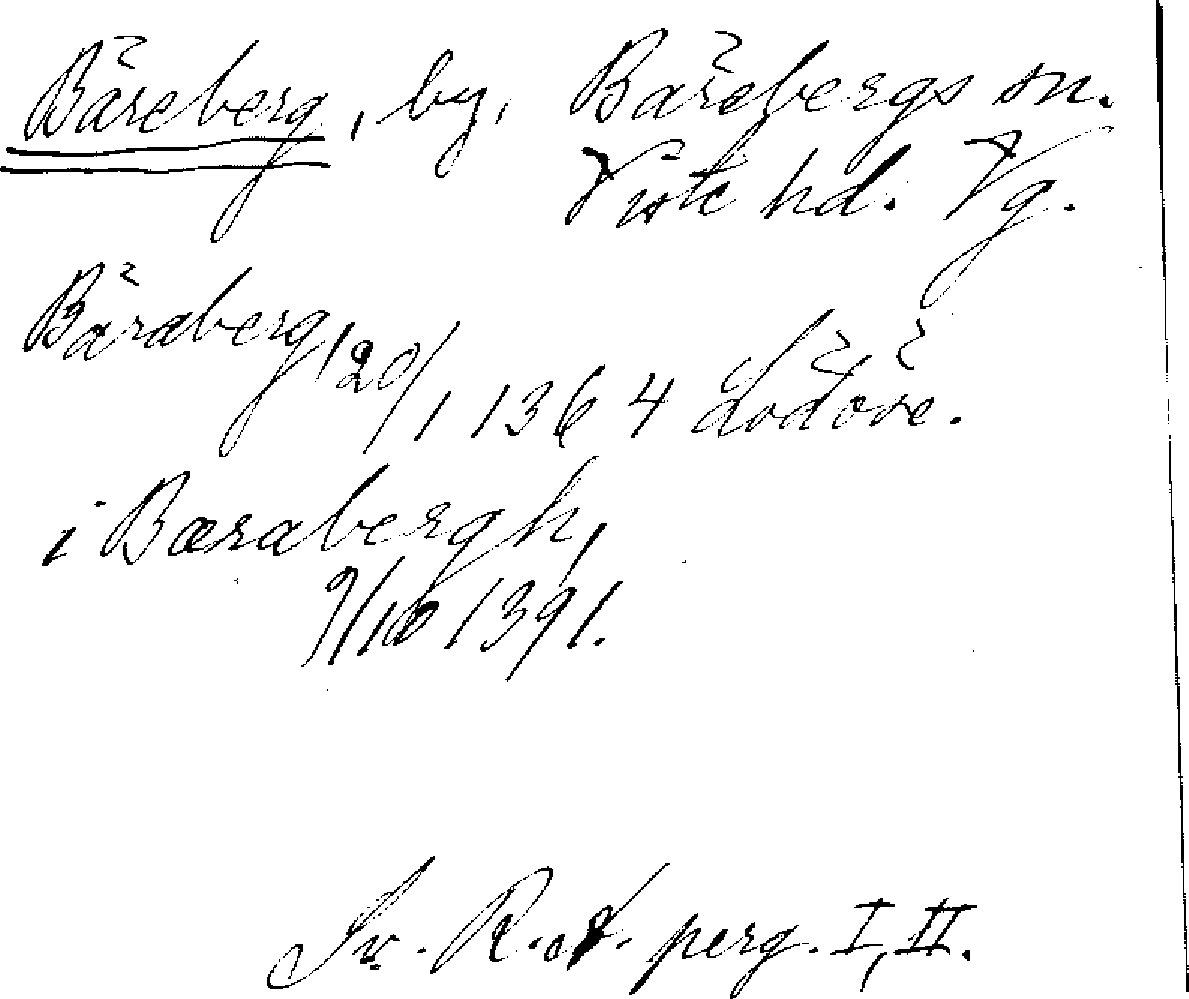 Bäreberg, by, Bärebergs sn.
Viste hd. Vg.
Bäraberg, 20/1 1364 Lödöse.
i Bærabergh,
9/10 1391.
Sv. R.a. perg. I, II.